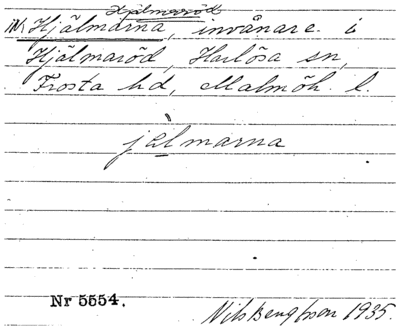 Hjälmaröd
Hjälmarna, invånare i
Hjälmaröd, Harlösa sn,
Frosta hd, Malmöh. l.
jælmarna
Nr 5554.
Nils Bengtsson 1935.